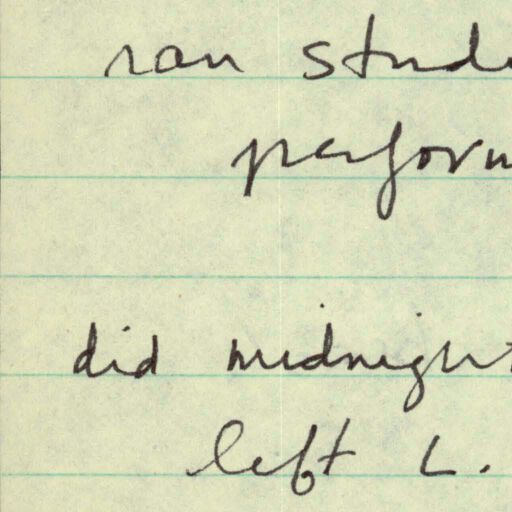 ran stude
perform
did midnight
left L.